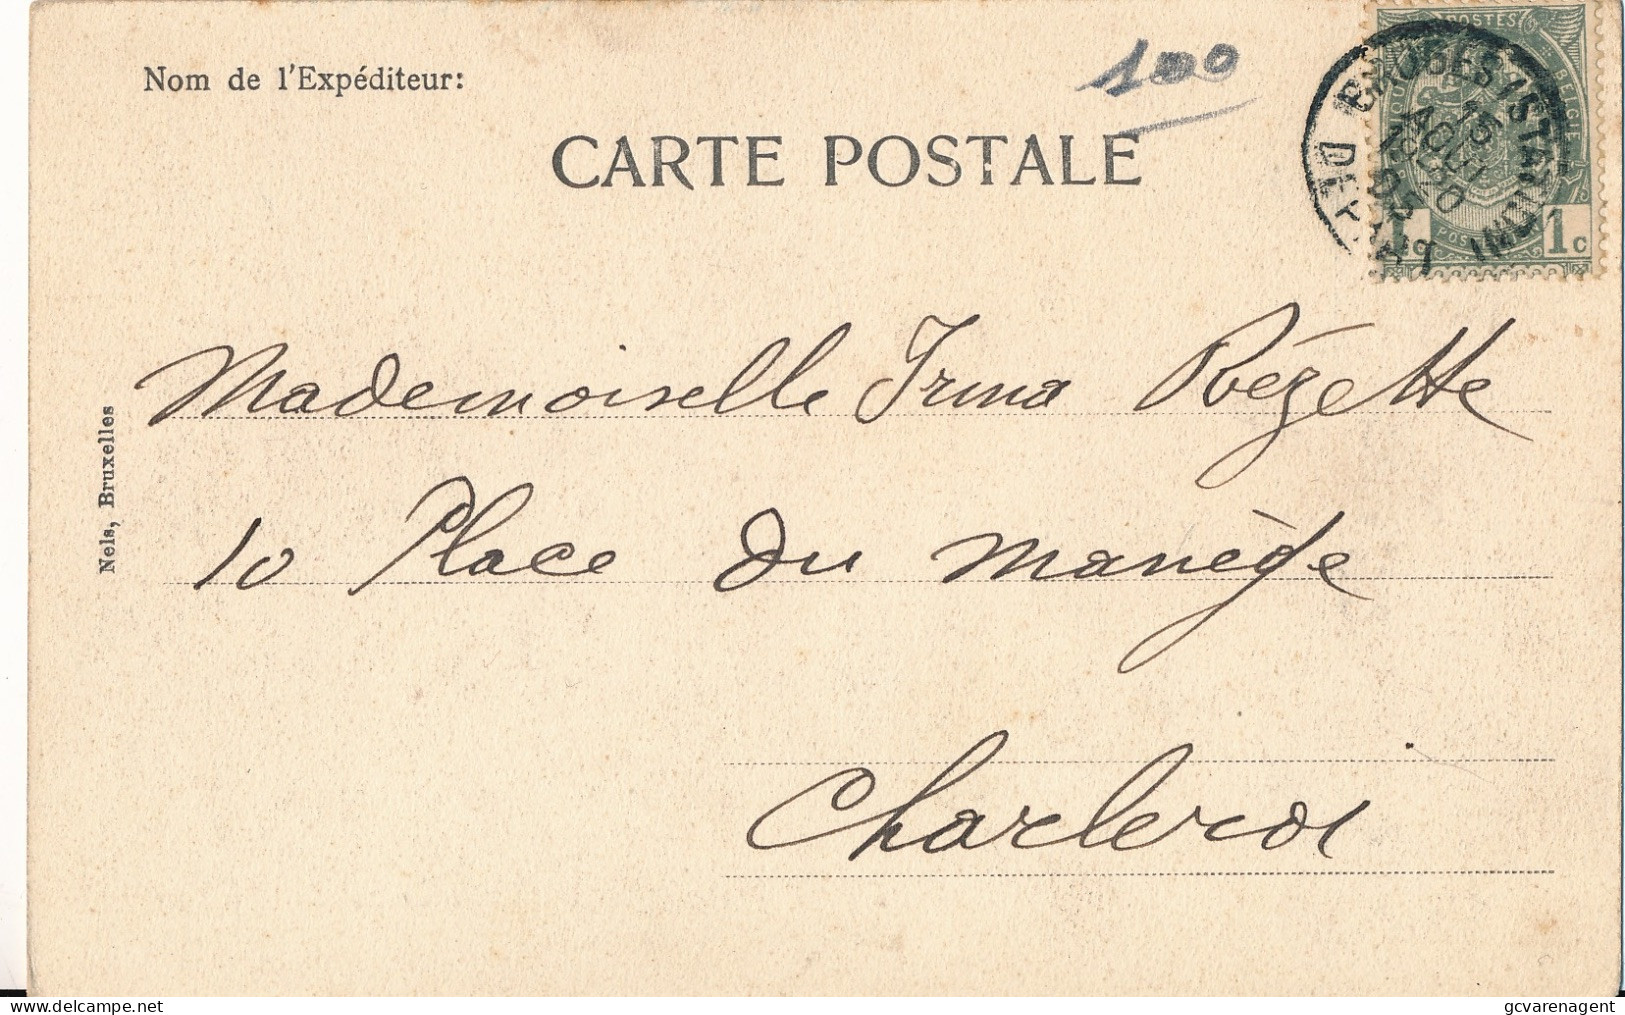 Nom de l'Expéditeur:
100
CARTE POSTALE
POSTES
BELGIE
BRUGES (STATION)
15
AOUT
DEPART
1c
1c
Mademoiselle Irma Rézette
10 Place du Manège
Charleroi
Nels, Bruxelles
https://www.delcampe.net
gcvarenagent